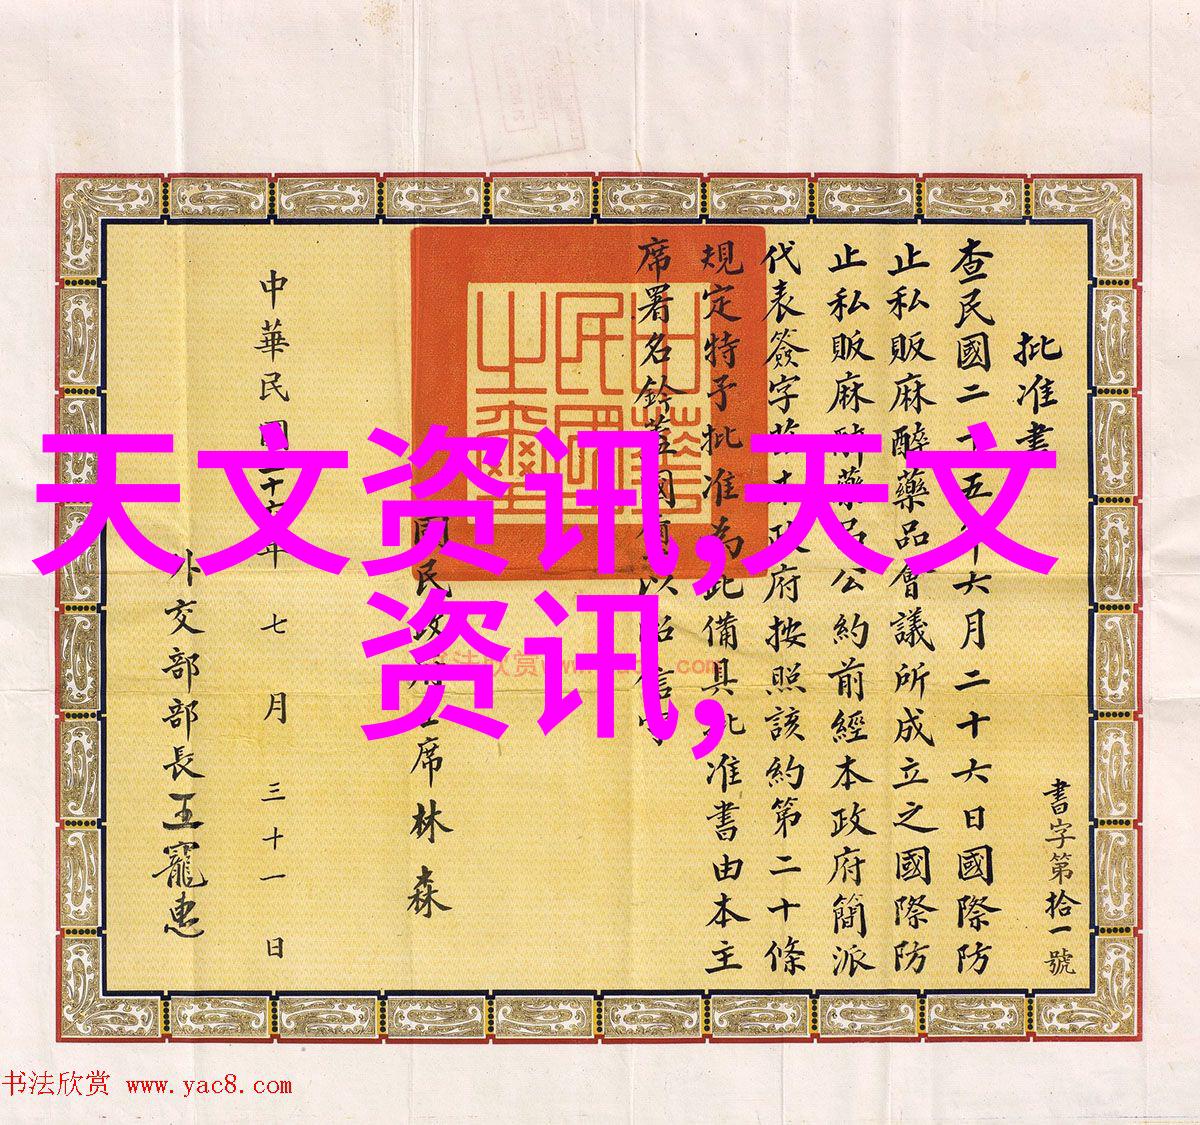 批准書
書字第拾一號
查民國二十五年六月二十六日國際防
止私販麻醉藥品會議所成立之國際防
止私販麻醉藥品公約前經本政府簡派
代表簽字茲本政府按照該約第二十條
規定特予批准為此備具批准書由本主
席署名鈐蓋國璽以昭信守
國民政府主席林森
中華民國二十六年七月三十一日
外交部部長王寵惠
天文资讯,天文
资讯,
书法欣赏 www.yac8.com